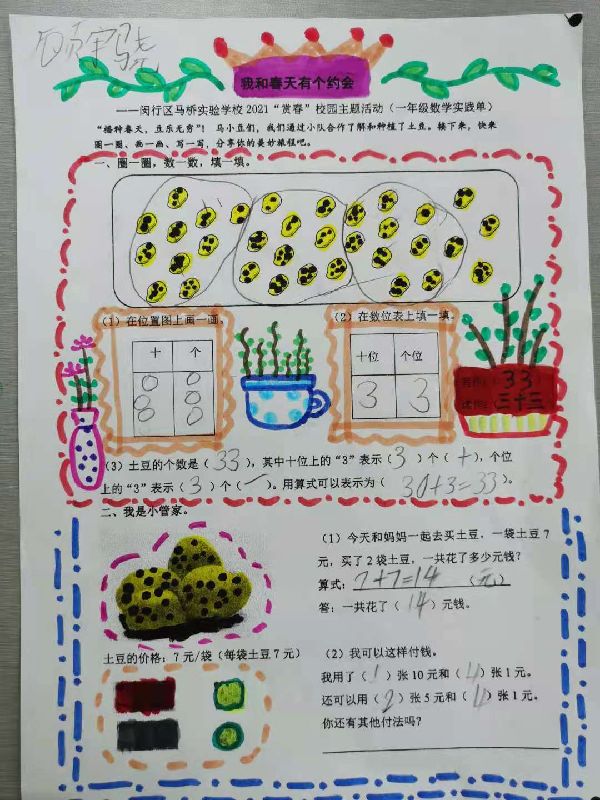 我和春天有个约会
——闵行区马桥实验学校 2021 “赏春” 校园主题活动（一年级数学实践单）
“播种春天，豆乐无穷”！ 马小豆们，我们通过小队合作了解和种植了土豆。接下来，快来
圈一圈、画一画、写一写，分享你的美妙旅程吧。
一、圈一圈，数一数，填一填。
（1）在位置图上画一画。
十 个
（2）在数位表上填一填。
十位 个位
3 3
写作：（ 33 ）
读作：（ 三十三 ）
（3）土豆的个数是（ 33 ），其中十位上的“3”表示（ 3 ）个（ 十 ），个位
上的“3”表示（ 3 ）个（ 一 ）。用算式可以表示为（ 30+3=33 ）。
二、我是小管家。
土豆的价格：7 元/袋（每袋土豆 7 元）
（1）今天和妈妈一起去买土豆，一袋土豆 7
元，买了 2 袋土豆，一共花了多少元钱？
算式：7+7=14 （元）
答：一共花了（ 14 ）元钱。
（2）我可以这样付钱。
我用了（ 1 ）张 10 元和（ 4 ）张 1 元。
还可以用（ 2 ）张 5 元和（ 4 ）张 1 元。
你还有其他付法吗？